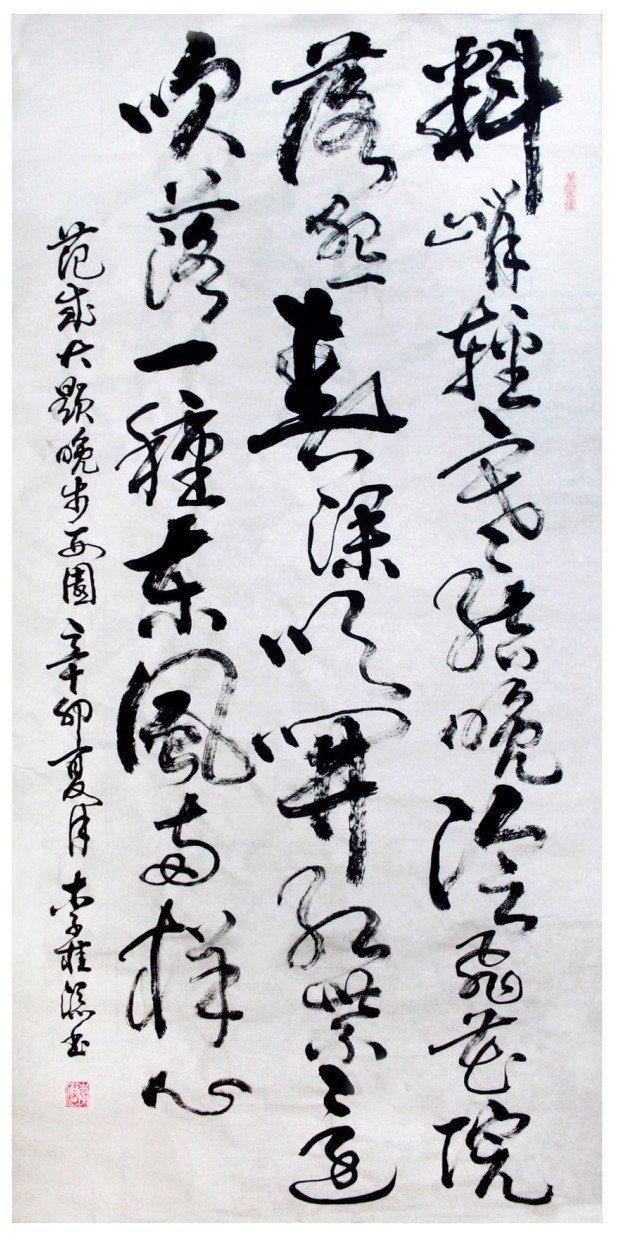 料峭輕寒結晚陰飛花院
落怨春深吹開紅紫還
吹落一種東風兩樣心
范成大題晚步西園 辛卯夏月 李桂書